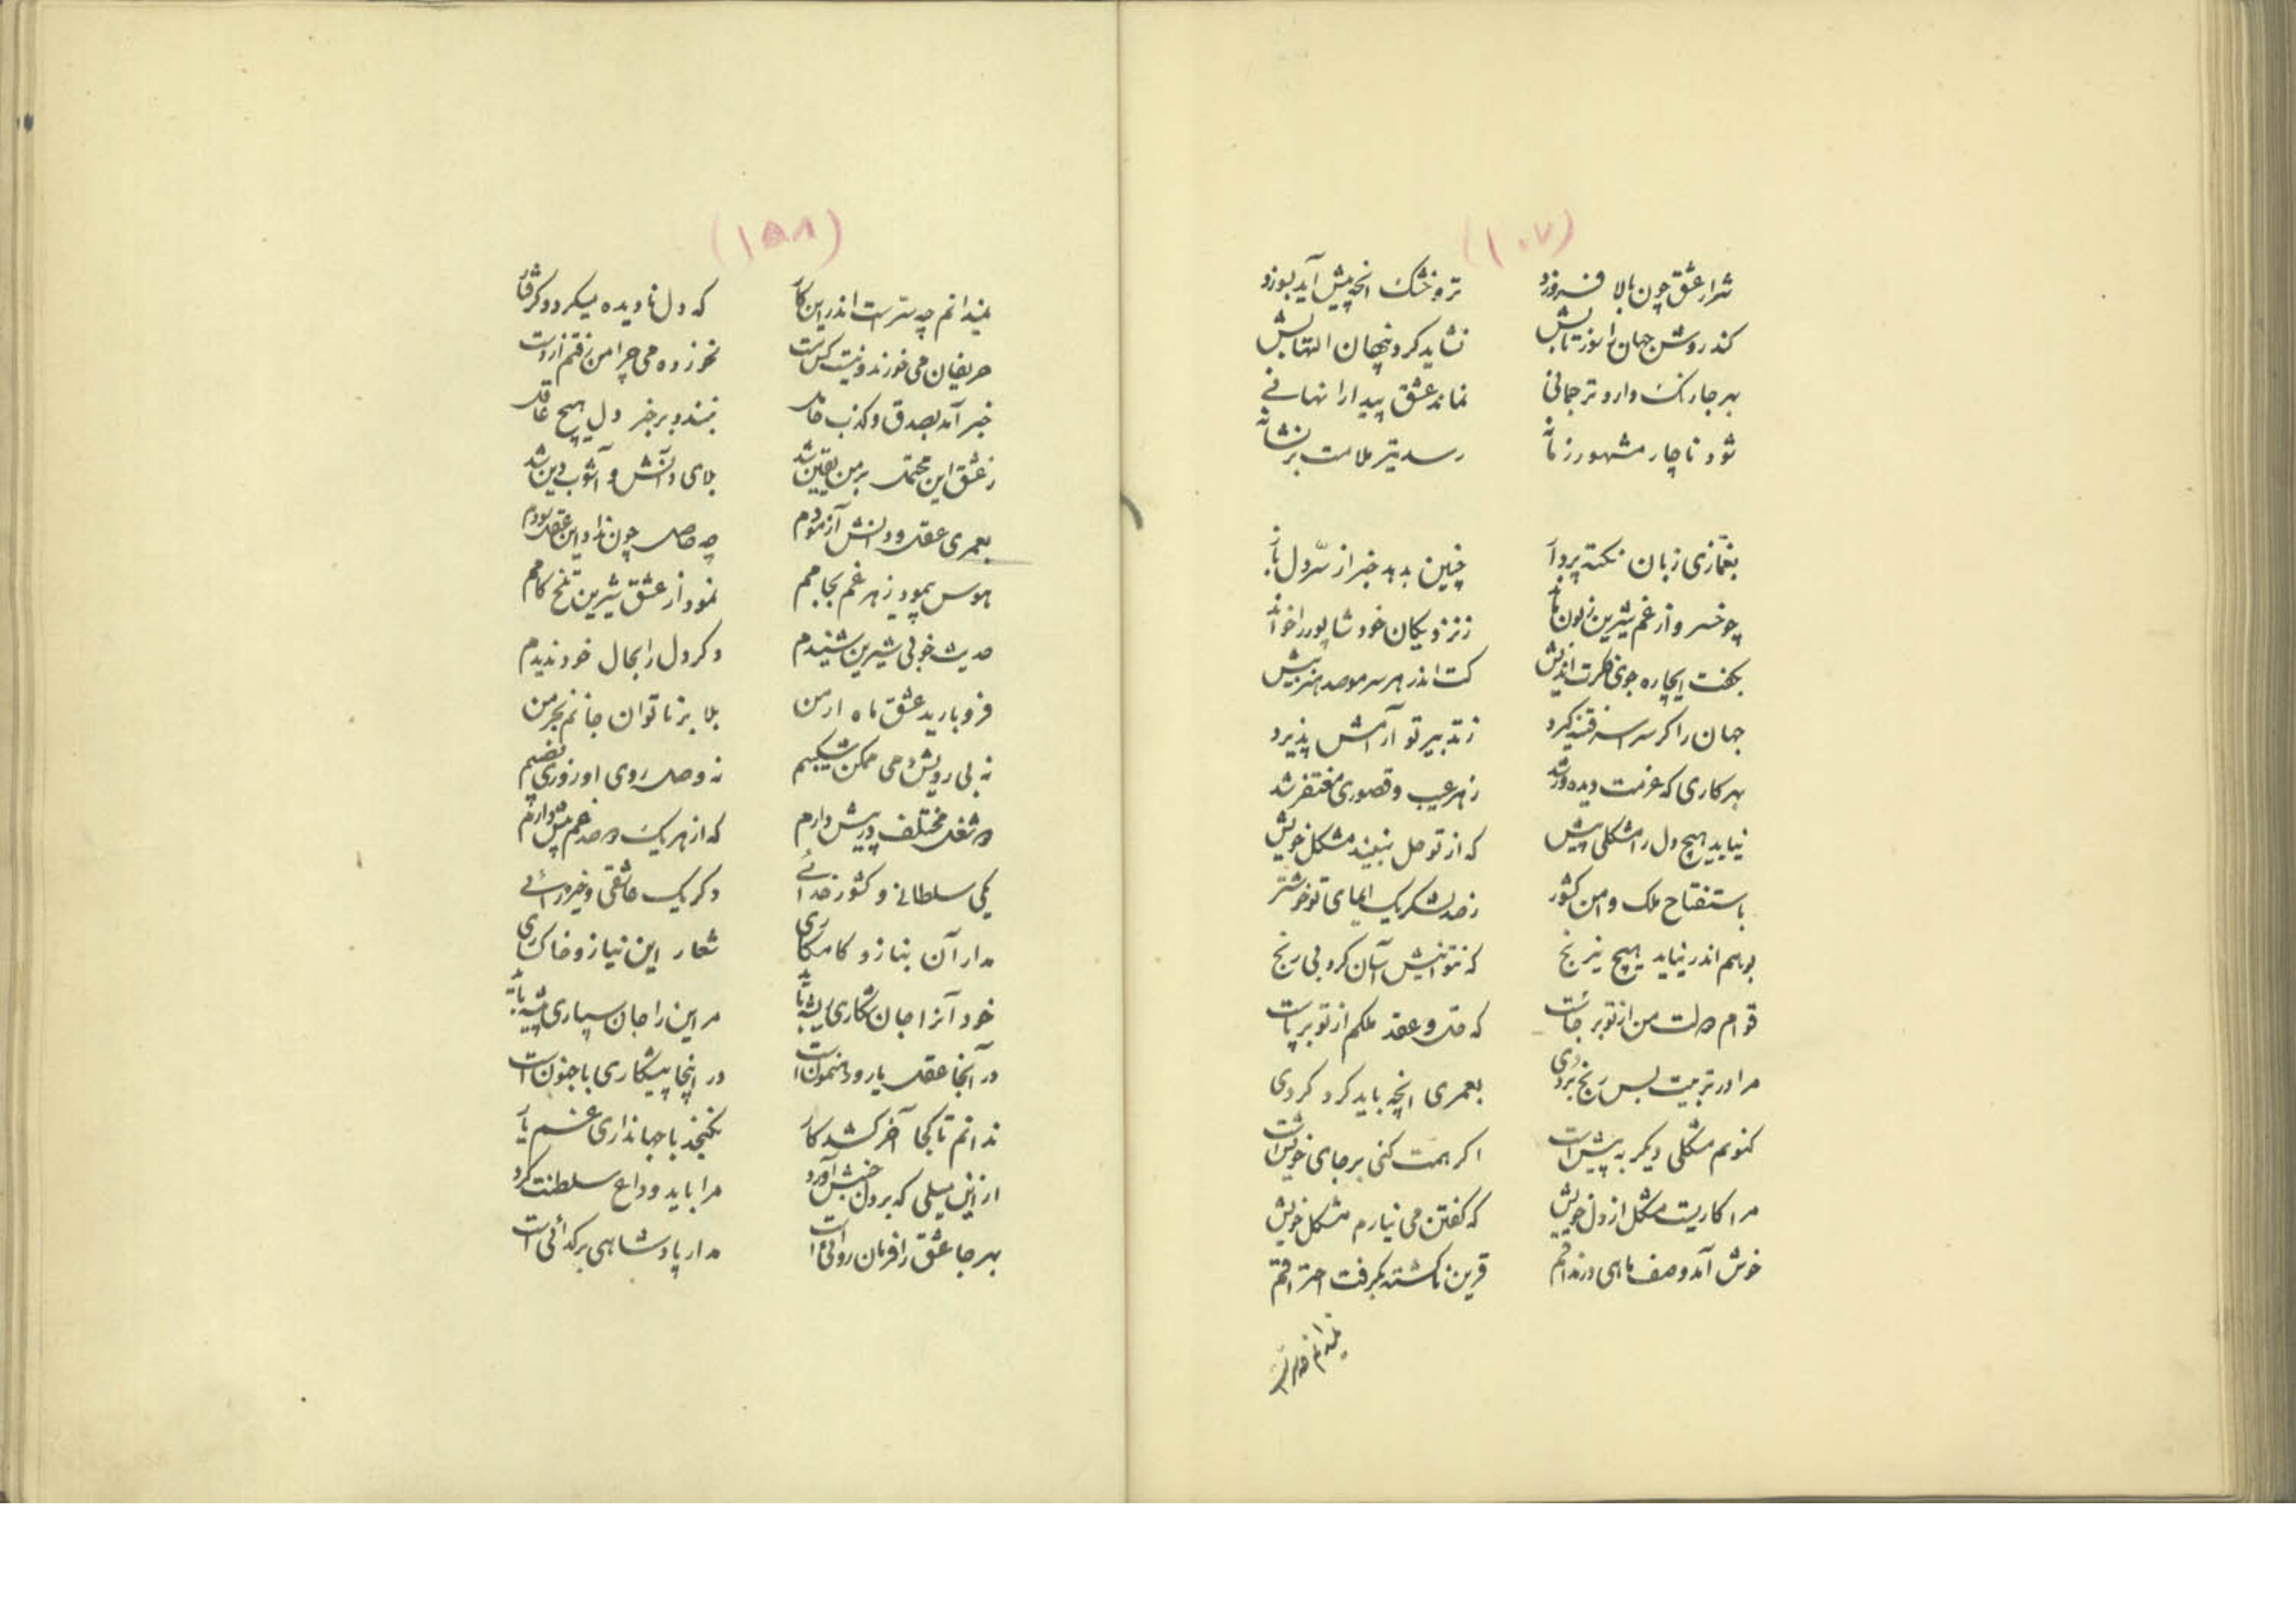 (۱۰۷)
شرار عشق چون بالا فروزد تر و خشک انچه پیش آید بسوزد
کند روشن جهان را نور تابش نشاید کرد پنهان التهابش
بهر جا رنک دارد ترجمانی نماند عشق پیدا را نهانی
شود ناچار مشهور زمانه رسد تیر ملامت بر نشانه
بغمازی زبان نکته پرداز چنین بدهد خبر از سر دل باز
چو خسرو از غم شیرین زبون ماند ز نزدیکان خود شاپور را خواند
بکفت ایچاره جوی فکرت اندیش کت اندر هر سر مو صد هنر بیش
جهان را کر سراسر فتنه کیرد ز تدبیر تو آرامش پذیرد
بهر کاری که عزمت دیده ور شد ز هر عیب و قصوری مغتفر شد
نیاید هیچ دل را مشکلی پیش که از تو حل نبیند مشکل خویش
باستفتاح ملک و امن کشور ز صد لشکر یک ایمای تو خوشتر
بوهم اندر نیاید هیچ نیرنج که نتوانیش آسان کرد بی رنج
قوام دولت من از تو بر جاست که حل و عقد ملکم از تو بر پاست
مرا در تربیت بس رنج بردی بعمری انچه باید کرد کردی
کنونم مشکلی دیکر به پیش است اکر همت کنی بر جای خویش است
مرا کاریست مشکل از دل خویش که کفتن می نیارم مشکل خویش
خوش آمد وصف ماهی در مذاقم قرین ناکشته بکرفت احتراقم
نمیدانم چه سر است
(۱۵۸)
نمیدانم چه سر است اندر این کار که دل نادیده میکردد کرفتار
حریفان می خورند و نیست کس مست نخورده می چرا من رفتم از دست
خبر آمد بصدق و کذب حامل نبندد بر خبر دل هیچ عاقل
ز عشق این محتمل بر من یقین شد بلای دانش و آشوب دین شد
بعمری عقل و دانش آزمودم چه حاصل چون نداد این عقل سودم
هوس پیمود زهر غم بجامم نمود از عشق شیرین تلخ کامم
حدیث خوبی شیرین شنیدم دکر دل را بحال خود ندیدم
فرو بارید عشق ماه ارمن بلا بر ناتوان جانم بخرمن
نه بی رویش دمی ممکن شکیبم نه وصل روی او روزی نصیبم
دو شغل مختلف در پیش دارم که از هر یک دو صد غم بیش دارم
یکی سلطانی و کشور خدائی دکر یک عاشقی و خیره رائی
مدار آن بناز و کامکاری شعار این نیاز و خاکساری
خود آنرا جان شکاری پیشه باید مر این را جان سپاری پیشه باید
در آنجا عقل یار و رهنمون است در اینجا پیشکاری با جنون است
ندانم تا کجا آخر کشد کار نکنجد با جهانداری غم یار
از این میلی که بر دل جنبش آورد مرا باید وداع سلطنت کرد
بهر جا عشق را فرمان روائی است مدار پادشاهی بر کدائی است